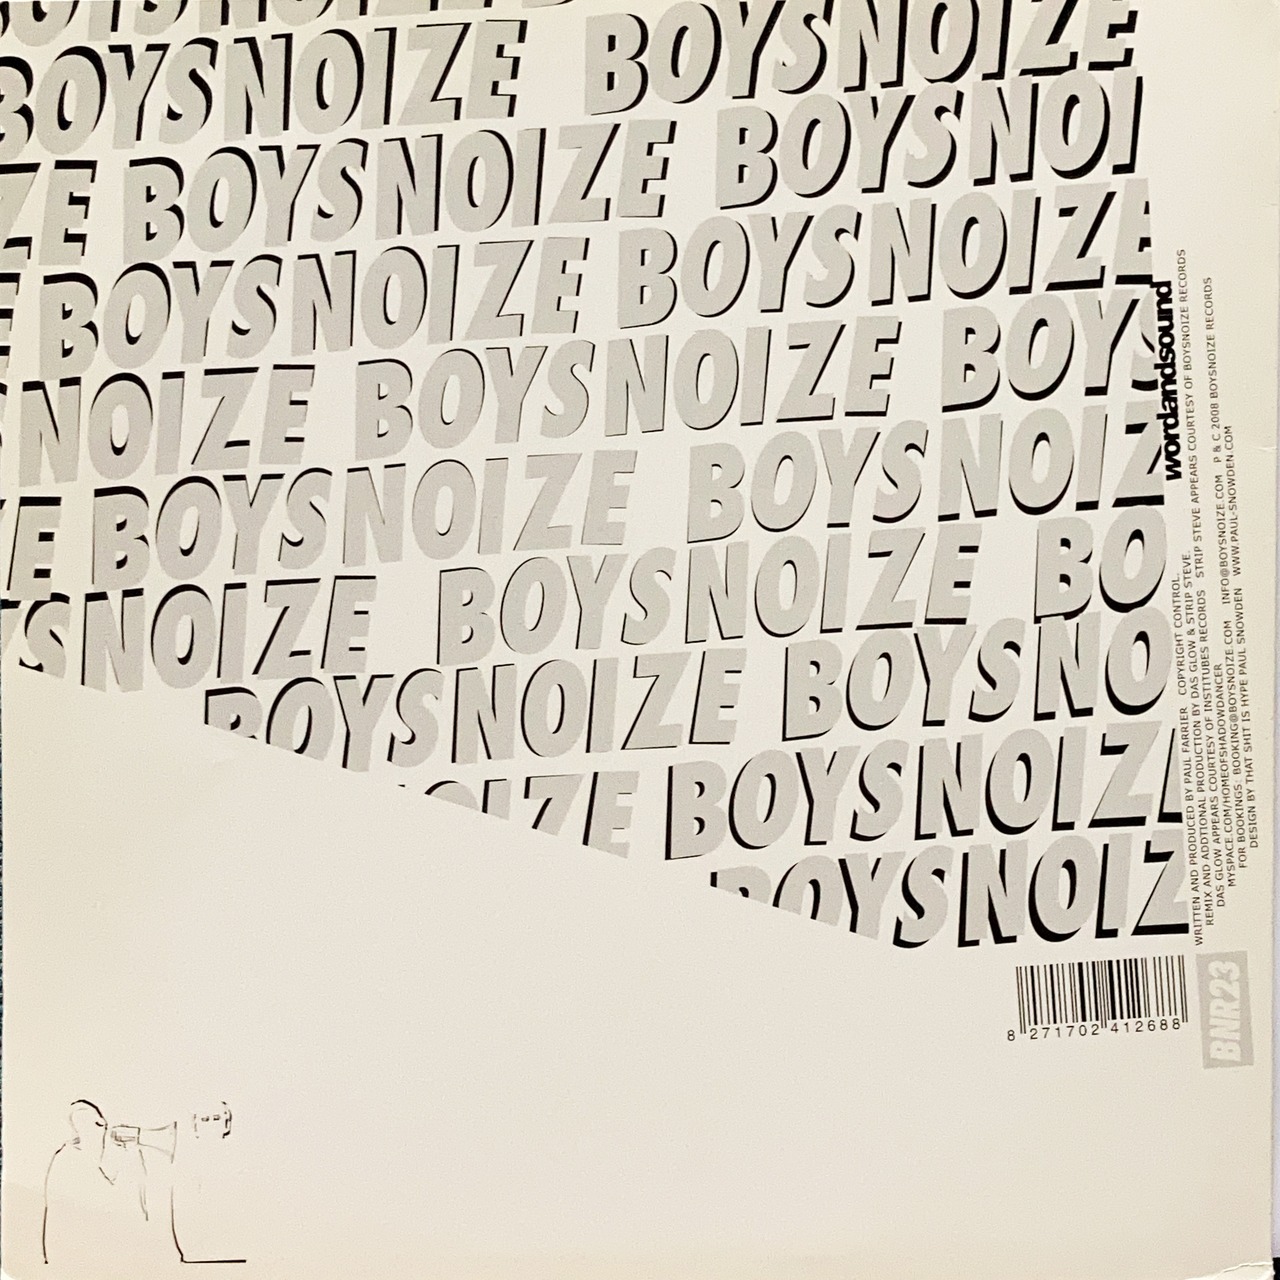 BOYSNOIZE BOYSNOIZE
ZE BOYSNOIZE BOYSNOI
E BOYSNOIZE BOYSNOIZE
SNOIZE BOYSNOIZE BOYS
E BOYSNOIZE BOYSNOIZ
YSNOIZE BOYSNOIZE BO
BOYSNOIZE BOYSNO
OIZE BOYSNOIZ
BOYSNOIZ
wordandsound
WRITTEN AND PRODUCED BY PAUL FARRIER COPYRIGHT CONTROL.
REMIX AND ADDTIONAL PRODUCTION BY DAS GLOW & STRIP STEVE.
DAS GLOW APPEARS COURTESY OF INSTITUBES RECORDS STRIP STEVE APPEARS COURTESY OF BOYSNOIZE RECORDS
MYSPACE.COM/HOMEOFSHADOWDANCER
FOR BOOKINGS: BOOKING@BOYSNOIZE.COM INFO@BOYSNOIZE.COM P & C 2008 BOYSNOIZE RECORDS
DESIGN BY THAT SHIT IS HYPE PAUL SNOWDEN WWW.PAUL-SNOWDEN.COM
8 271702 412688
BNR23